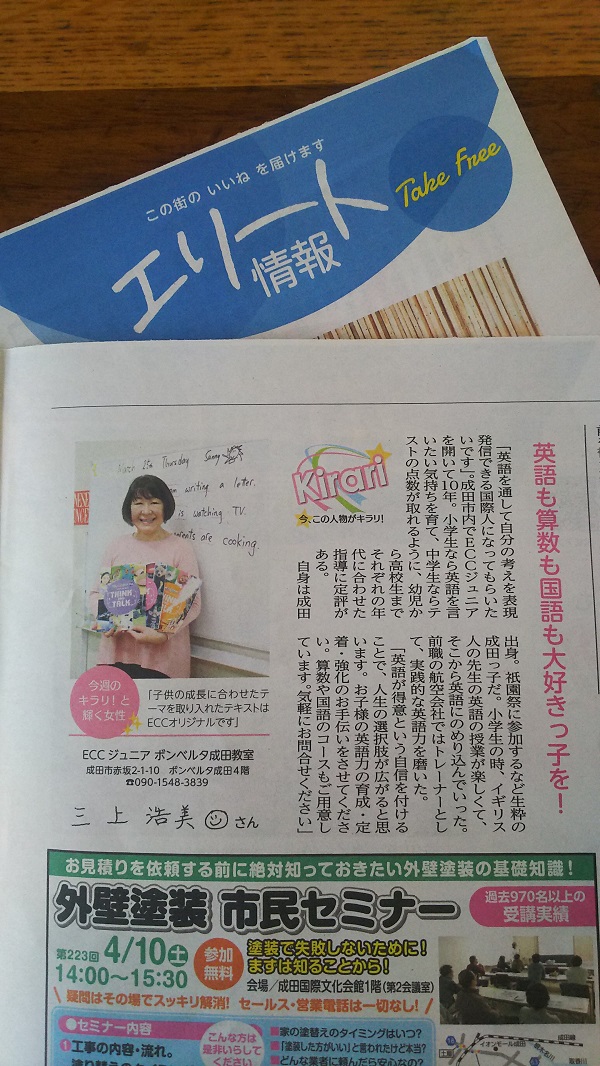 この街の いいね を届けます
エリート
情報
Take Free
英語も算数も国語も大好きっ子を！
「英語を通して自分の考えを表現
発信できる国際人になってもらいた
いです」。成田市内でECCジュニア
を開いて10年。小学生なら英語を言
いたい気持ちを育て、中学生ならテ
ストの点数が取れるように、幼児か
ら高校生まで
それぞれの年
代に合わせた
指導に定評が
ある。
自身は成田
出身。祇園祭に参加するなど生粋の
成田っ子だ。小学生の時、イギリス
人の先生の英語の授業が楽しくて、
そこから英語にのめり込んでいった。
前職の航空会社ではトレーナーとし
て、実践的な英語力を磨いた。
「英語が得意という自信を付ける
ことで、人生の選択肢が広がると思
います。お子様の英語力の育成・定
着・強化のお手伝いをさせてくださ
い。算数や国語のコースもご用意し
ています。気軽にお問合せください」
Kirari
今、この人物がキラリ！
March 25th Thursday Sunny
writing a letter.
is watching TV.
are cooking.
THINK
TALK
今週の
キラリ！と
輝く女性
「子供の成長に合わせたテ
ーマを取り入れたテキストは
ECCオリジナルです」
ECC ジュニア ボンベルタ成田教室
成田市赤坂2-1-10 ボンベルタ成田４階
☎090-1548-3839
三上 浩美 さん
お見積りを依頼する前に絶対知っておきたい外壁塗装の基礎知識！
外壁塗装 市民セミナー
過去970名以上の
受講実績
第223回 4/10土
14:00〜15:30
参加
無料
塗装で失敗しないために！
まずは知ることから！
会場／成田国際文化会館1階（第2会議室）
疑問はその場でスッキリ解消！ セールス・営業電話は一切なし！
●セミナー内容
❶工事の内容・流れ。
こんな方は
是非いらして
ください
■家の塗替えのタイミングはいつ？
■「塗装した方がいい」と言われたけど本当？
■どんな業者に頼んだら安心なの？
イオンモール成田
成田線